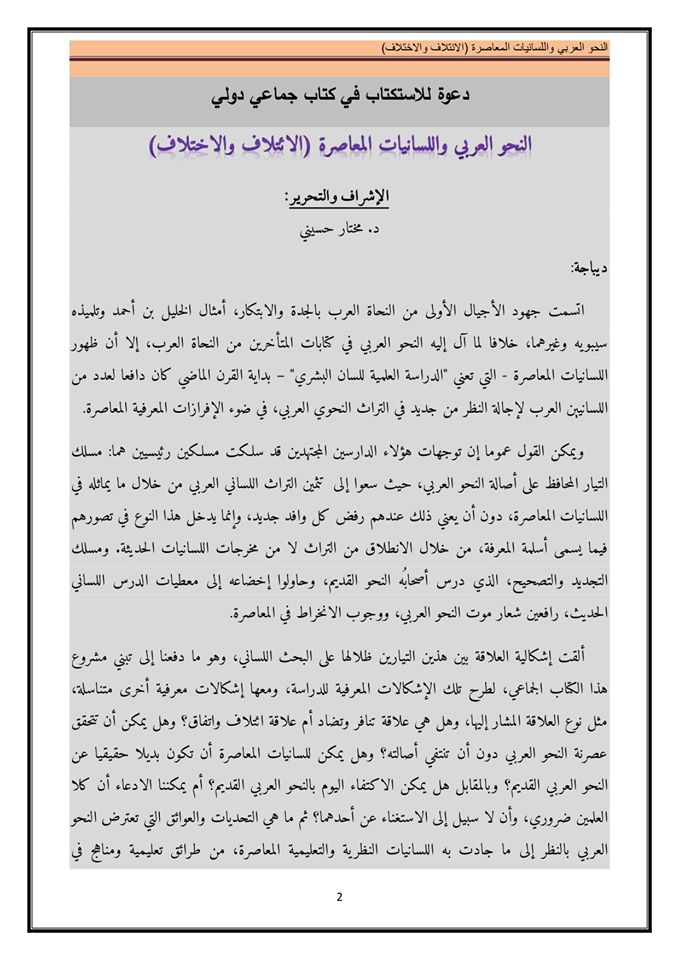 النحو العربي واللسانيات المعاصرة (الائتلاف والاختلاف)
دعوة للاستكتاب في كتاب جماعي دولي
النحو العربي واللسانيات المعاصرة (الائتلاف والاختلاف)
الإشراف والتحرير:
د. مختار حسيني
ديباجة:
اتسمت جهود الأجيال الأولى من النحاة العرب بالجدة والابتكار، أمثال الخليل بن أحمد وتلميذه
سيبويه وغيرهما، خلافا لما آل إليه النحو العربي في كتابات المتأخرين من النحاة العرب، إلا أن ظهور
اللسانيات المعاصرة - التي تعني "الدراسة العلمية للسان البشري" – بداية القرن الماضي كان دافعا لعدد من
اللسانيين العرب لإجالة النظر من جديد في التراث النحوي العربي، في ضوء الإفرازات المعرفية المعاصرة.
ويمكن القول عموما إن توجهات هؤلاء الدارسين المجتهدين قد سلكت مسلكين رئيسيين هما: مسلك
التيار المحافظ على أصالة النحو العربي، حيث سعوا إلى تثمين التراث اللساني العربي من خلال ما يماثله في
اللسانيات المعاصرة، دون أن يعني ذلك عندهم رفض كل وافد جديد، وإنما يدخل هذا النوع في تصورهم
فيما يسمى أسلمة المعرفة، من خلال الانطلاق من التراث لا من مخرجات اللسانيات الحديثة. ومسلك
التجديد والتصحيح، الذي درس أصحابُه النحو القديم، وحاولوا إخضاعه إلى معطيات الدرس اللساني
الحديث، رافعين شعار موت النحو العربي، ووجوب الانخراط في المعاصرة.
ألقت إشكالية العلاقة بين هذين التيارين ظلالها على البحث اللساني، وهو ما دفعنا إلى تبني مشروع
هذا الكتاب الجماعي، لطرح تلك الإشكالات المعرفية للدراسة، ومعها إشكالات معرفية أخرى متناسلة،
مثل نوع العلاقة المشار إليها، وهل هي علاقة تنافر وتضاد أم علاقة ائتلاف واتفاق؟ وهل يمكن أن تتحقق
عصرنة النحو العربي دون أن تنتفي أصالته؟ وهل يمكن للسانيات المعاصرة أن تكون بديلا حقيقيا عن
النحو العربي القديم؟ وبالمقابل هل يمكن الاكتفاء اليوم بالنحو العربي القديم؟ أم يمكننا الادعاء أن كلا
العلمين ضروري، وأن لا سبيل إلى الاستغناء عن أحدهما؟ ثم ما هي التحديات والعوائق التي تعترض النحو
العربي بالنظر إلى ما جادت به اللسانيات النظرية والتعليمية المعاصرة، من طرائق تعليمية ومناهج في
2